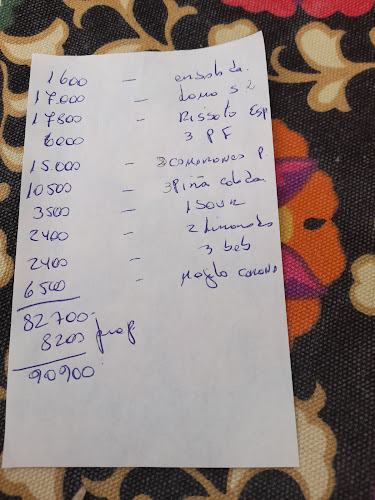 1600 - ensalada.
17.000 - Lomo s 2
17800 - Rissoto Esp
6000 3 PF
15.000 - 3 camarones P.
10500 - 3 Piña colada
3500 - 1 sour
2400 - 2 limonadas
2400 3 beb
6500 - Mojito corona
82700.-
8200 prop
90900